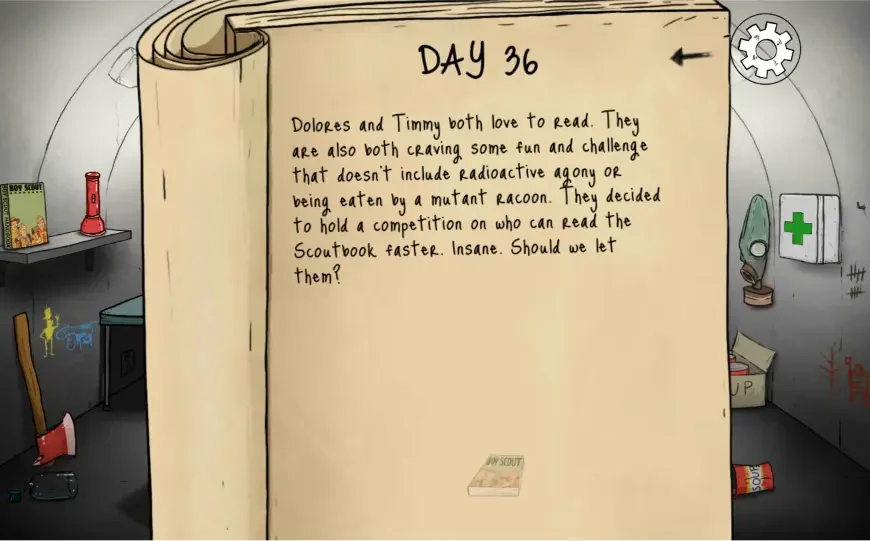 DAY 36
Dolores and Timmy both love to read. They
are also both craving some fun and challenge
that doesn't include radioactive agony or
being eaten by a mutant racoon. They decided
to hold a competition on who can read the
Scoutbook faster. Insane. Should we let
them?
BOY SCOUT
BOY SCOUT
UP
SOUP